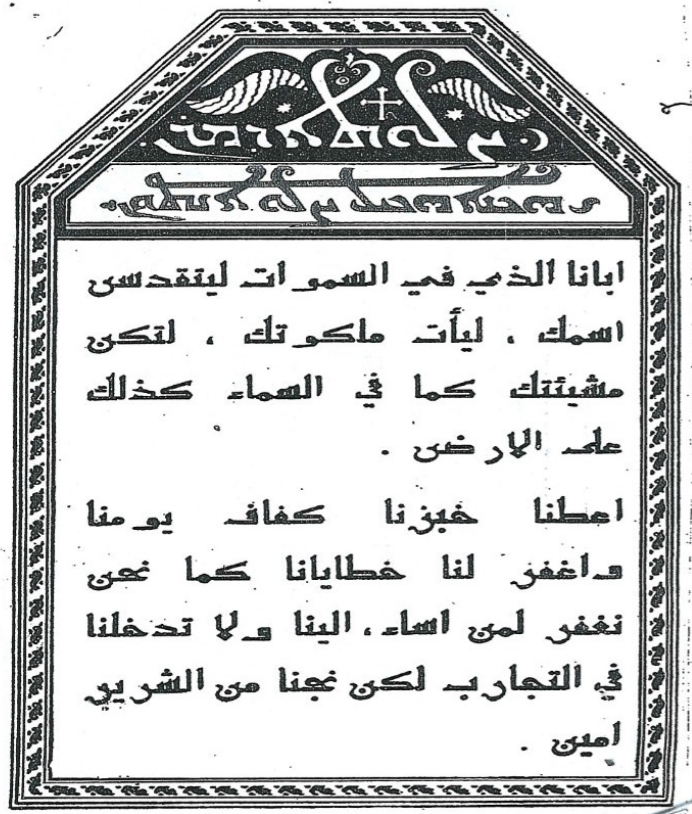 ابانا الذي في السموات ليتقدس
اسمك ، ليأت ملكوتك ، لتكن
مشيئتك كما في السماء كذلك
على الارض .
اعطنا خبزنا كفاف يومنا
واغفر لنا خطايانا كما نحن
نغفر لمن اساء، الينا ولا تدخلنا
في التجارب لكن نجنا من الشرير
امين .